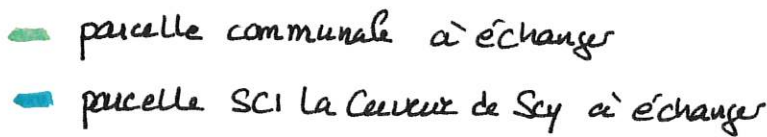 parcelle communale à échanger
parcelle SCI La Cuveux de Scy à échanger